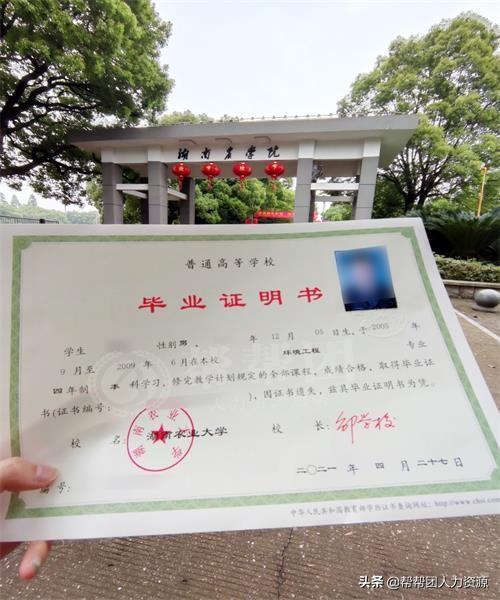 湖南农学院
普通高等学校
毕业证明书
学生 性别男， 年 12 月 05 日生，于 2005 年
9 月至 2009 年 6 月在本校 环境工程 专业
四年制 本 科学习，修完教学计划规定的全部课程，成绩合格，取得毕业证
书(证书编号： )，因证书遗失，兹具毕业证明书为凭。
校 名：湖南农业大学 校 长：
湖南农业大学
二〇二一 年 四 月 二十七 日
编号：
中华人民共和国教育部学历证书查询网址：http://www.chsi.
头条 @帮帮团人力资源